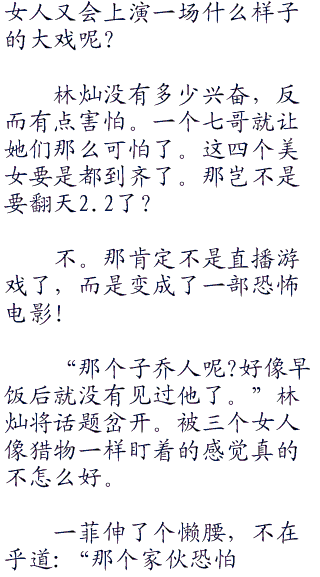 女人又会上演一场什么样子
的大戏呢?
林灿没有多少兴奋，反
而有点害怕。一个七哥就让
她们那么可怕了。这四个美
女要是都到齐了。那岂不是
要翻天2.2了?
不。那肯定不是直播游
戏了，而是变成了一部恐怖
电影!
“那个子乔人呢?好像早
饭后就没有见过他了。”林
灿将话题岔开。被三个女人
像猎物一样盯着的感觉真的
不怎么好。
一菲伸了个懒腰，不在
乎道:“那个家伙恐怕